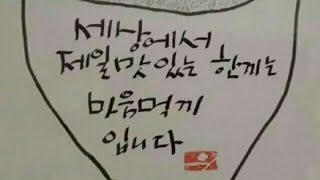 세상에서
제일맛있는 한끼는
마음먹끼
입니다